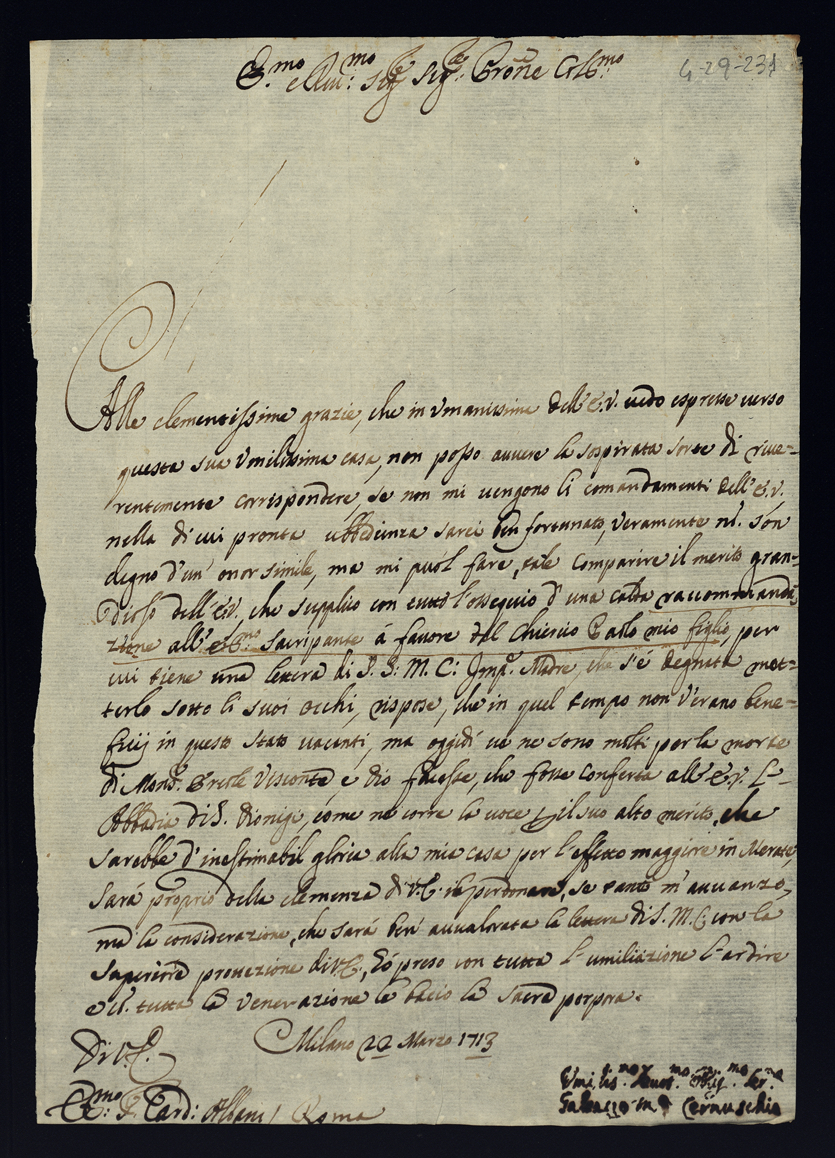 E.mo e Rev.mo Sig.r Sig.r Prone Col.mo
4-29-231
Alle clementissime grazie, che in umanissime dell'E.V. vedo espresse verso
questa sua Umilissima casa, non posso avvere la sospirata sorte di rive=
rentemente corrispondere, se non mi vengono li comandamenti dell'E.V.
nella di cui pronta ubbedienza sarei ben fortunato, veramente nè son
degno d'un' onor simile, ma mi può far, tale comparire il merito gran=
dioso dell'E.V., che supplico con tutto l'ossequio d'una calda raccommanda=
zione all'E.mo Sacripante á favore del Chierico Paolo mio figlio, per
cui tiene una lettera di S. S. M. C: Imp.e Madre, che s'é degnata met=
terlo sotto li suoi occhi, rispose, che in quel tempo non v'erano bene=
ficij in questo stato vacanti, ma oggidí ve ne sono molti per la morte
di Mons. Ercole Visconte, e dio facesse, che fosse conferta all'E.V. l'
Abbadia di S. Dionigi, come ne corre la voce p il suo alto merito, che
sarebbe d'inestimabil gloria alla mia casa per l'effetto maggiore in Merate,
Sará proprio della clemenza di V.E. il perdonare, se tanto m'avvanzo,
ma la considerazione, che sará ben avvalorata la lettera di S. M. C. con la
superiore protezione di V.E., hó preso con tutta l'umiliazione l'ardire
e c. tutta la venerazione le bacio la sacra porpora.
Di V.E.
Milano 22 Marzo 1713
E.mo S. Card: Albani / Roma
Umilis.mo Devot.mo Obblig.mo Ser.re
Galeazzo M.a Cernuschio